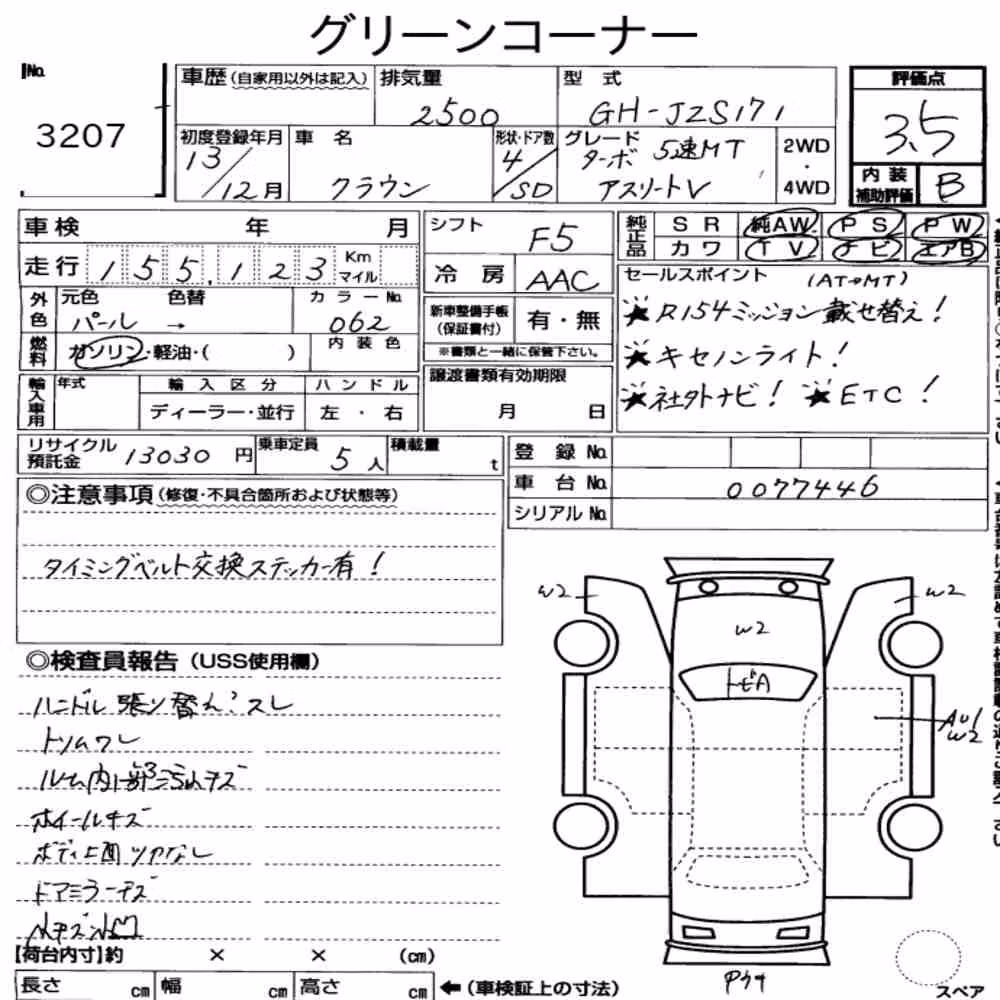 グリーンコーナー
No.
3207
車歴(自家用以外は記入)
排気量
2500
型式
GH-JZS171
評価点
3.5
初度登録年月
13/12月
車名
クラウン
形状・ドア数
4/SD
グレード
ターボ 5速MT
アスリートV
2WD
・
4WD
内装
補助評価
B
車検 年 月
シフト
F5
純正品
SR
純AW
PS
PW
カワ
TV
ナビ
エアB
走行
155,123
Km
マイル
冷房
AAC
セールスポイント
(AT→MT)
★R154ミッション載せ替え!
★キセノンライト!
★社外ナビ! ★ETC!
外色
元色
パール
色替
→
カラーNo.
062
新車整備手帳
(保証書付)
有・無
※書類と一緒に保管下さい。
燃料
ガソリン・軽油・( )
内装色
譲渡書類有効期限
月 日
輸入車用
年式
輸入区分
ディーラー・並行
ハンドル
左・右
リサイクル
預託金
13030円
乗車定員
5人
積載量
t
登録No.
車台No.
0077446
シリアルNo.
◎注意事項(修復・不具合箇所および状態等)
タイミングベルト交換ステッカー有!
◎検査員報告(USS使用欄)
ハンドル張り替え?スレ
トリムワレ
ルーム内部汚れキズ
ホイールキズ
ボディ上面ツヤなし
ドアミラーキズ
小キズ小凹
W2
W2
W2
トビA
AU1
W2
【荷台内寸】約 × × (cm)
長さ cm
幅 cm
高さ cm
←(車検証上の寸法)
スペア